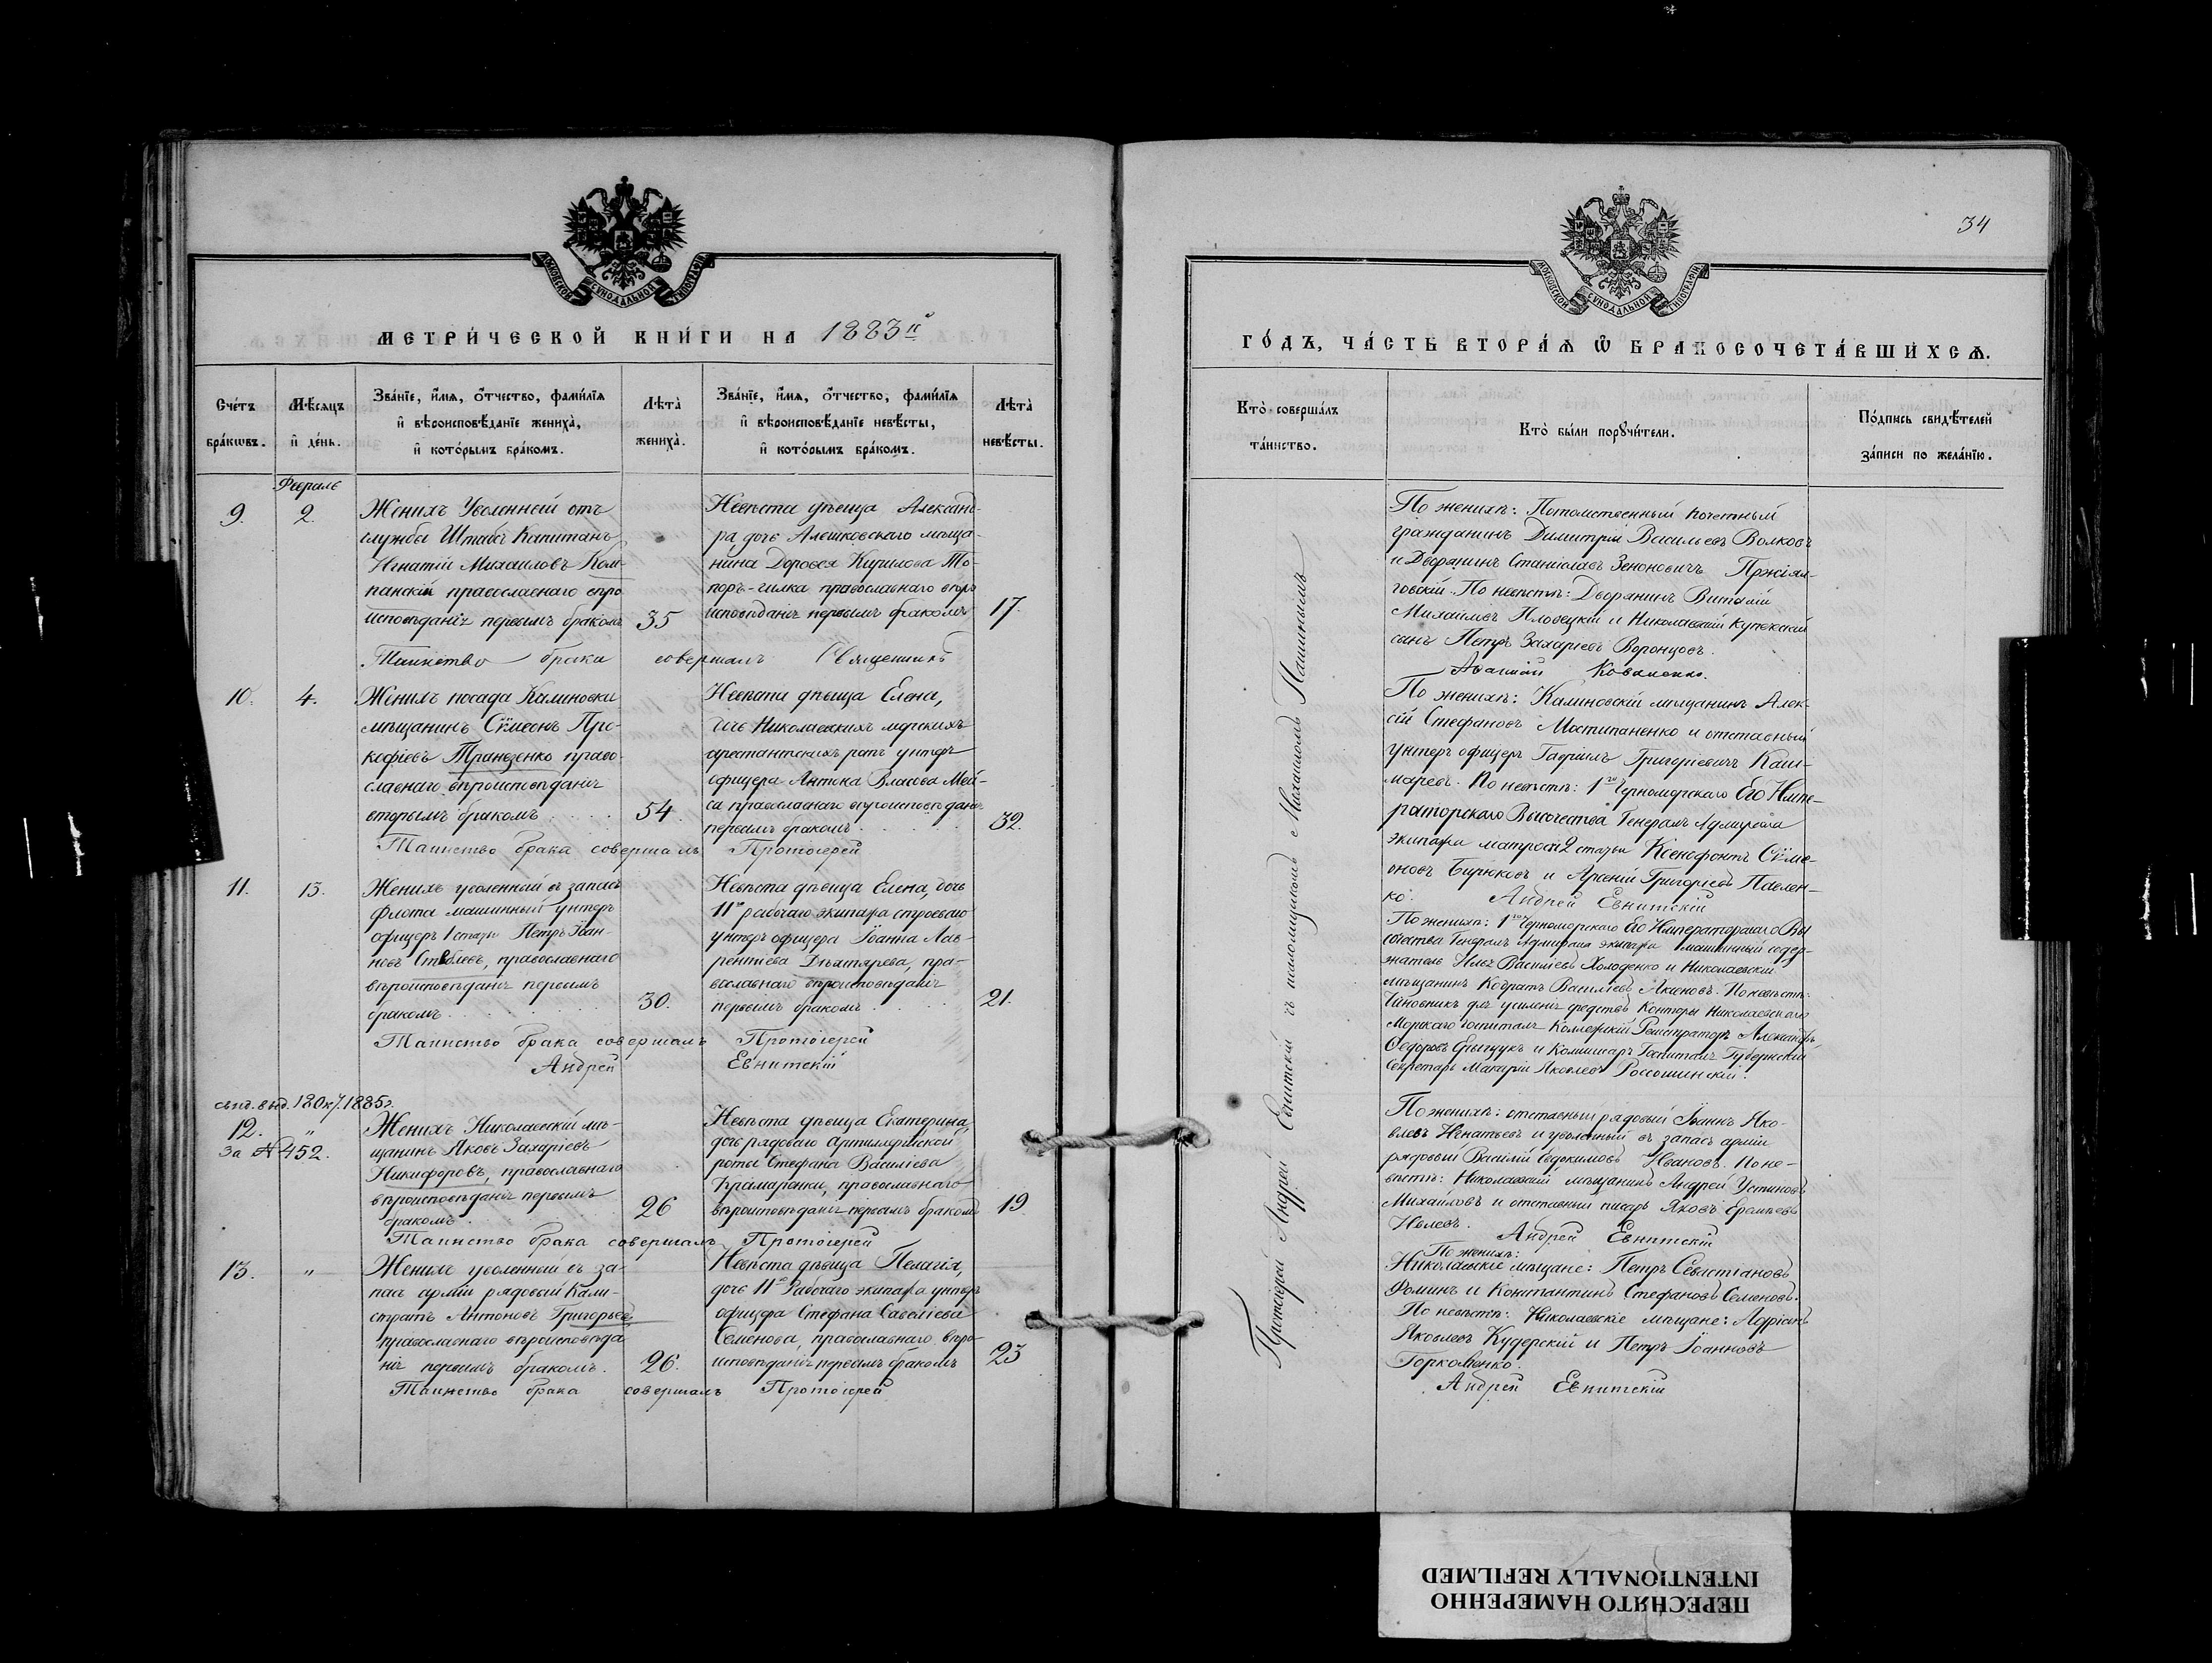 34
МОСКОВСКОЙ СѴНОДАЛЬНОЙ ТИПОГРАФІИ
МЕТРИ́ЧЕСКОЙ КНИ́ГИ НА 1883й
Сче́тъ бра́кѡвъ.
Мѣ́сяцъ и҆ де́нь.
Зва́нїе, и҆́мѧ, ѻ҆́тчество, фами́лїѧ
и҆ вѣроисповѣ́данїе жениха̀,
и҆ кото́рымъ бра́комъ.
Лѣта̀ жениха̀.
Зва́нїе, и҆́мѧ, ѻ҆́тчество, фами́лїѧ
и҆ вѣроисповѣ́данїе невѣ́сты,
и҆ кото́рымъ бра́комъ.
Лѣта̀ невѣ́сты.
Февраль
9. 2.
Женихъ Уволенный отъ
службы Штабсъ Капитанъ
Игнатій Михаиловъ Ком-
панскій православнаго вѣро
исповѣданія первымъ бракомъ 35
Невѣста дѣвица Александ-
ра дочь Алешковскаго мѣща-
нина Дорофея Кирилова То-
поръ-гилка православнаго вѣро
исповѣданія первымъ бракомъ 17.
Таинство брака совершалъ Священникъ
10. 4.
Женихъ посада Калиновки
мѣщанинъ Сѵмеонъ Про-
кофіевъ Транзенко право-
славнаго вѣроисповѣданія
вторымъ бракомъ 54.
Невѣста дѣвица Елена,
дочь Николаевскихъ морскихъ
арестантскихъ ротъ унтеръ
офицера Антона Власова Мей-
са православнаго вѣроисповѣданія
первымъ бракомъ 32.
Таинство брака совершалъ Протоіерей
11. 13.
Женихъ уволенный въ запасъ
флота машинный унтеръ
офицеръ 1 статьи Петръ Іоан-
новъ Стеблевъ, православнаго
вѣроисповѣданія первымъ
бракомъ 30.
Невѣста дѣвица Елена, дочь
11го рабочаго экипажа строеваго
унтеръ офицера Іоанна Лав-
рентіева Дѣхтярева, пра-
вославнаго вѣроисповѣданія
первымъ бракомъ 21.
Таинство брака совершалъ Протоіерей
Андрей Евнитскій
12. "
за № 452.
Женихъ Николаевскій мѣ-
щанинъ Яковъ Захаріевъ
Никифоровъ, православнаго
вѣроисповѣданія первымъ
бракомъ 26
Невѣста дѣвица Екатерина,
дочь рядоваго артиллерійской
роты Стефана Василіева
Крамаренки, православнаго
вѣроисповѣданія первымъ бракомъ 19
Таинство брака совершалъ Протоіерей
13. "
Женихъ уволенный въ за-
пасъ арміи рядовый Кали-
стратъ Антоновъ Григорьевъ
православнаго вѣроисповѣда
нія первымъ бракомъ. 26.
Невѣста дѣвица Пелагія,
дочь 11го Рабочаго экипажа унтеръ
офицера Стефана Савеліева
Семенова, православнаго вѣро-
исповѣданія первымъ бракомъ 23
Таинство брака совершалъ Протоіерей
МОСКОВСКОЙ СѴНОДАЛЬНОЙ ТИПОГРАФІИ
ГО́ДЪ, ЧА́СТЬ ВТОРА́Ѧ Ѽ БРАКОСОЧЕТА́ВШИХСѦ.
Кто̀ соверша́лъ
та́инство.
Кто̀ бы́ли порꙋчи́тели.
По́дпись свидѣ́телей
за́писи по жела́нїю.
Протоіерей Андрей Евнитскій съ псаломщикомъ Михаиломъ Пашинымъ
По женихѣ: Потомственный почетный
гражданинъ Димитрій Васильевъ Волковъ
и Дворянинъ Станиславъ Зеноновичъ Пржіял-
говскій. По невѣстѣ: Дворянинъ Виталій
Михаиловъ Пловецкій и Николаевскій купеческій
сынъ Петръ Захаріевъ Воронцовъ.
По женихѣ: Калиновскій мѣщанинъ Алек-
сій Стефановъ Мостипаненко и отставный
унтеръ офицеръ Гавріилъ Григоріевичъ Каш-
маревъ. По невѣстѣ: 1го Черноморскаго Его Импе-
раторскаго Высочества Генералъ Адмирала
экипажа матросы 2 статьи Ксенофонтъ Сѵме-
оновъ Бирюковъ и Арсеній Григорьевъ Павлен-
ко. Андрей Евнитскій
По женихѣ: 1го Черноморскаго Его Императорскаго Вы
сочества Генералъ Адмирала экипажа машинный содер-
жатель Илья Василіевъ Холоденко и Николаевскій
мѣщанинъ Кодратъ Василіевъ Аксеновъ. По невѣстѣ:
Чиновникъ для усиленія средствъ Конторы Николаевскаго
Морскаго госпиталя Коллежскій Регистраторъ Александръ
Ѳедоровъ и Коммисаръ Госпиталя Губернскій
Секретарь Макарій Яковлевъ Россошинскій.
По женихѣ: отставный рядовый Іоаннъ Яко-
влевъ Игнатьевъ и уволенный въ запасъ арміи
рядовый Василій Евдокимовъ Ивановъ. По не-
вѣстѣ: Николаевскій мѣщанинъ Андрей Устиновъ
Михайловъ и отставный писарь Яковъ Еремѣевъ
Андрей Евнитскій
По женихѣ:
Николаевскіе мѣщане: Петръ Севастіановъ
Фоминъ и Константинъ Стефановъ Семеновъ.
По невѣстѣ: Николаевскіе мѣщане: Адріанъ
Яковлевъ Кудерскій и Петръ Іоанновъ
Горковенко.
Андрей Евнитскій
ПЕРЕСНЯТО НАМЕРЕННО
INTENTIONALLY REFILMED